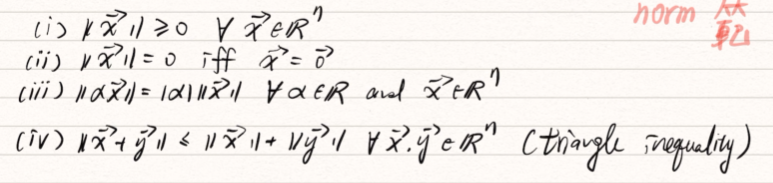 (i) ‖x⃗‖ ≥ 0 ∀ x⃗ ∈ ℝⁿ
norm
(ii) ‖x⃗‖ = 0 iff x⃗ = 0⃗
(iii) ‖αx⃗‖ = |α|‖x⃗‖ ∀ α ∈ ℝ and x⃗ ∈ ℝⁿ
(iv) ‖x⃗+y⃗‖ ≤ ‖x⃗‖ + ‖y⃗‖ ∀ x⃗.y⃗ ∈ ℝⁿ (triangle inequality)